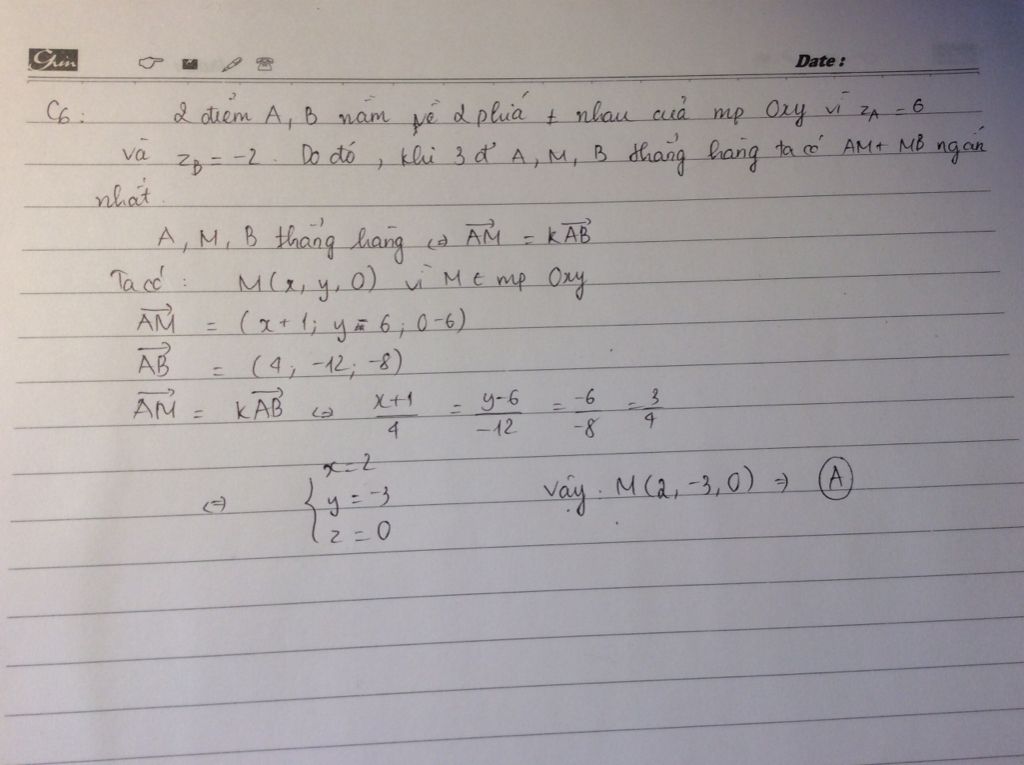 Grin Date:
C6: 2 điểm A, B nằm về 2 phía ≠ nhau của mp Oxy vì z_A = 6
và z_B = -2. Do đó, khi 3 đ' A, M, B thẳng hàng ta có AM + MB ngắn
nhất.
A, M, B thẳng hàng <=> \overrightarrow{AM} = k\overrightarrow{AB}
Ta có: M(x, y, 0) vì M ∈ mp Oxy
\overrightarrow{AM} = (x+1; y-6; 0-6)
\overrightarrow{AB} = (4; -12; -8)
\overrightarrow{AM} = k\overrightarrow{AB} <=> \frac{x+1}{4} = \frac{y-6}{-12} = \frac{-6}{-8} = \frac{3}{4}
<=> { x=2
y = -3
z = 0
Vậy: M(2, -3, 0) => (A)